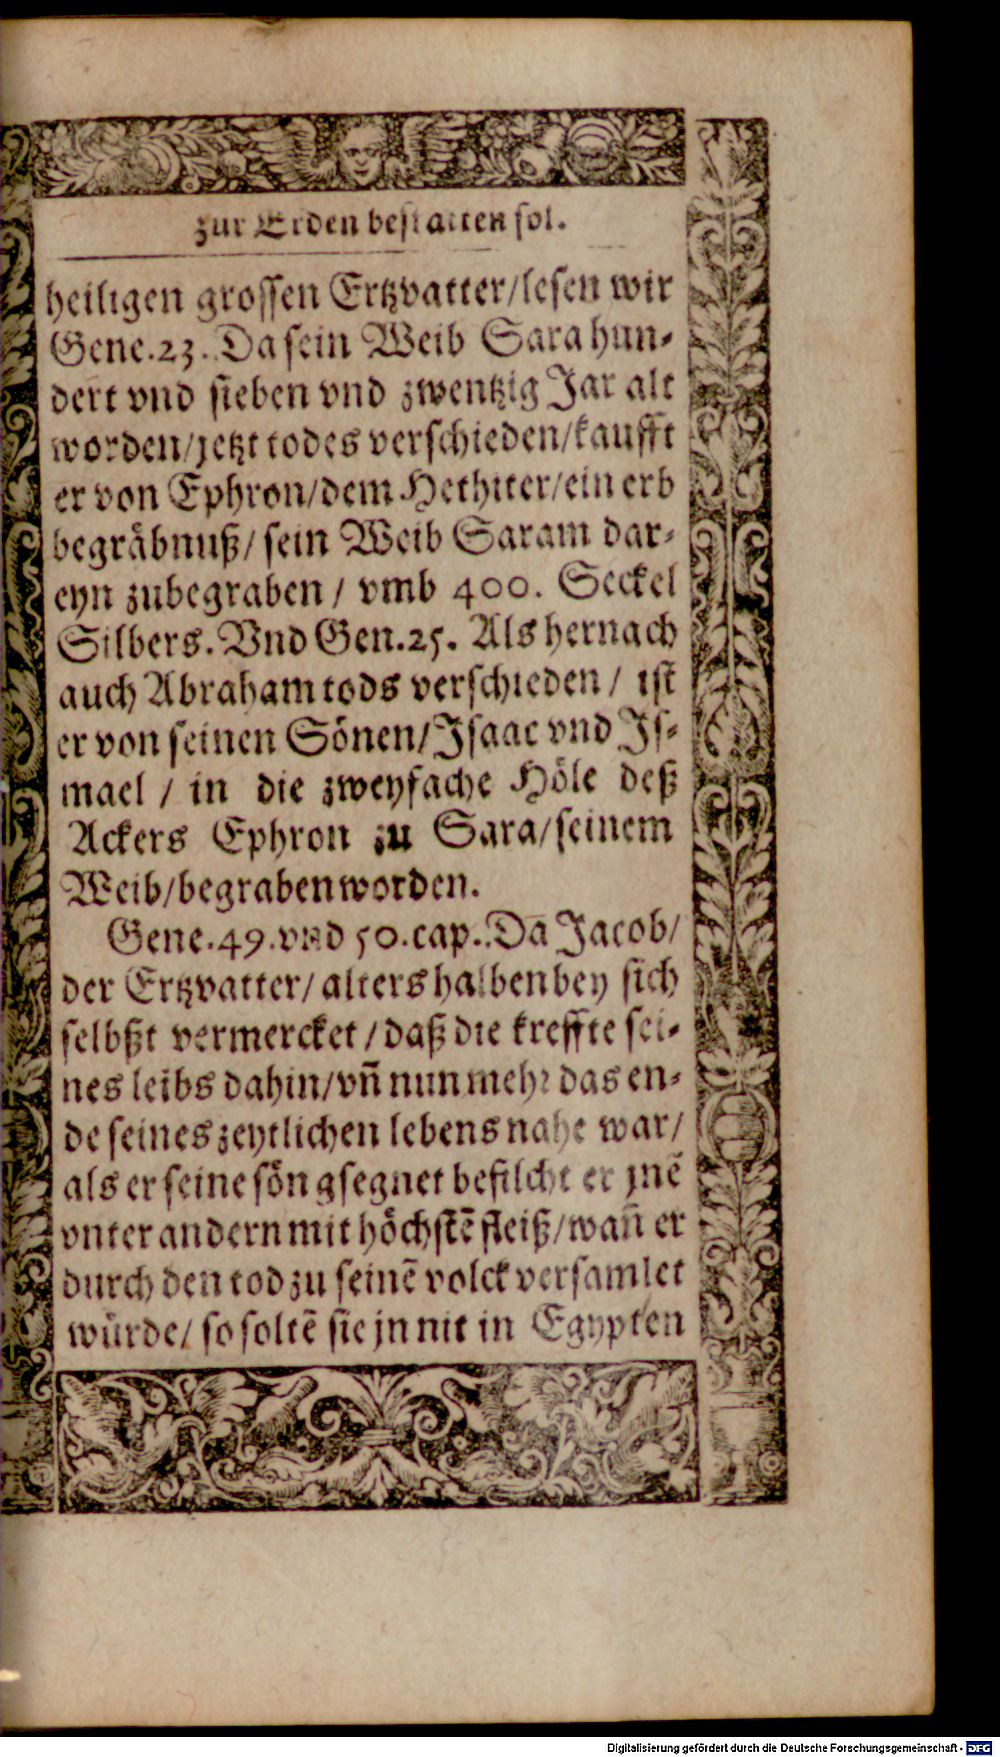 zur Erden bestatten sol.
heiligen grossen Ertzvatter/lesen wir
Gene.23. Da sein Weib Sara hun⸗
dert vnd sieben vnd zwentzig Jar alt
worden/jetzt todes verschieden/kaufft
er von Ephron/dem Hethiter/ein erb
begräbnuß/ sein Weib Saram dar⸗
eyn zubegraben / vmb 400. Seckel
Silbers. Vnd Gen.25. Als hernach
auch Abraham tods verschieden / ist
er von seinen Sönen/Isaac vnd Is⸗
mael / in die zweyfache Höle deß
Ackers Ephron zu Sara/seinem
Weib/begraben worden.
Gene.49.vnd 50.cap. Da Jacob/
der Ertzvatter/ alters halben bey sich
selbßt vermercket / daß die kreffte sei⸗
nes leibs dahin/vn̄ nun mehr das en⸗
de seines zeytlichen lebens nahe war/
als er seine sön gsegnet befilcht er jnē
vnter andern mit höchstē fleiß/wan̄ er
durch den tod zu seinē volck versamlet
würde/ so soltē sie jn nit in Egypten
Digitalisierung gefördert durch die Deutsche Forschungsgemeinschaft - DFG